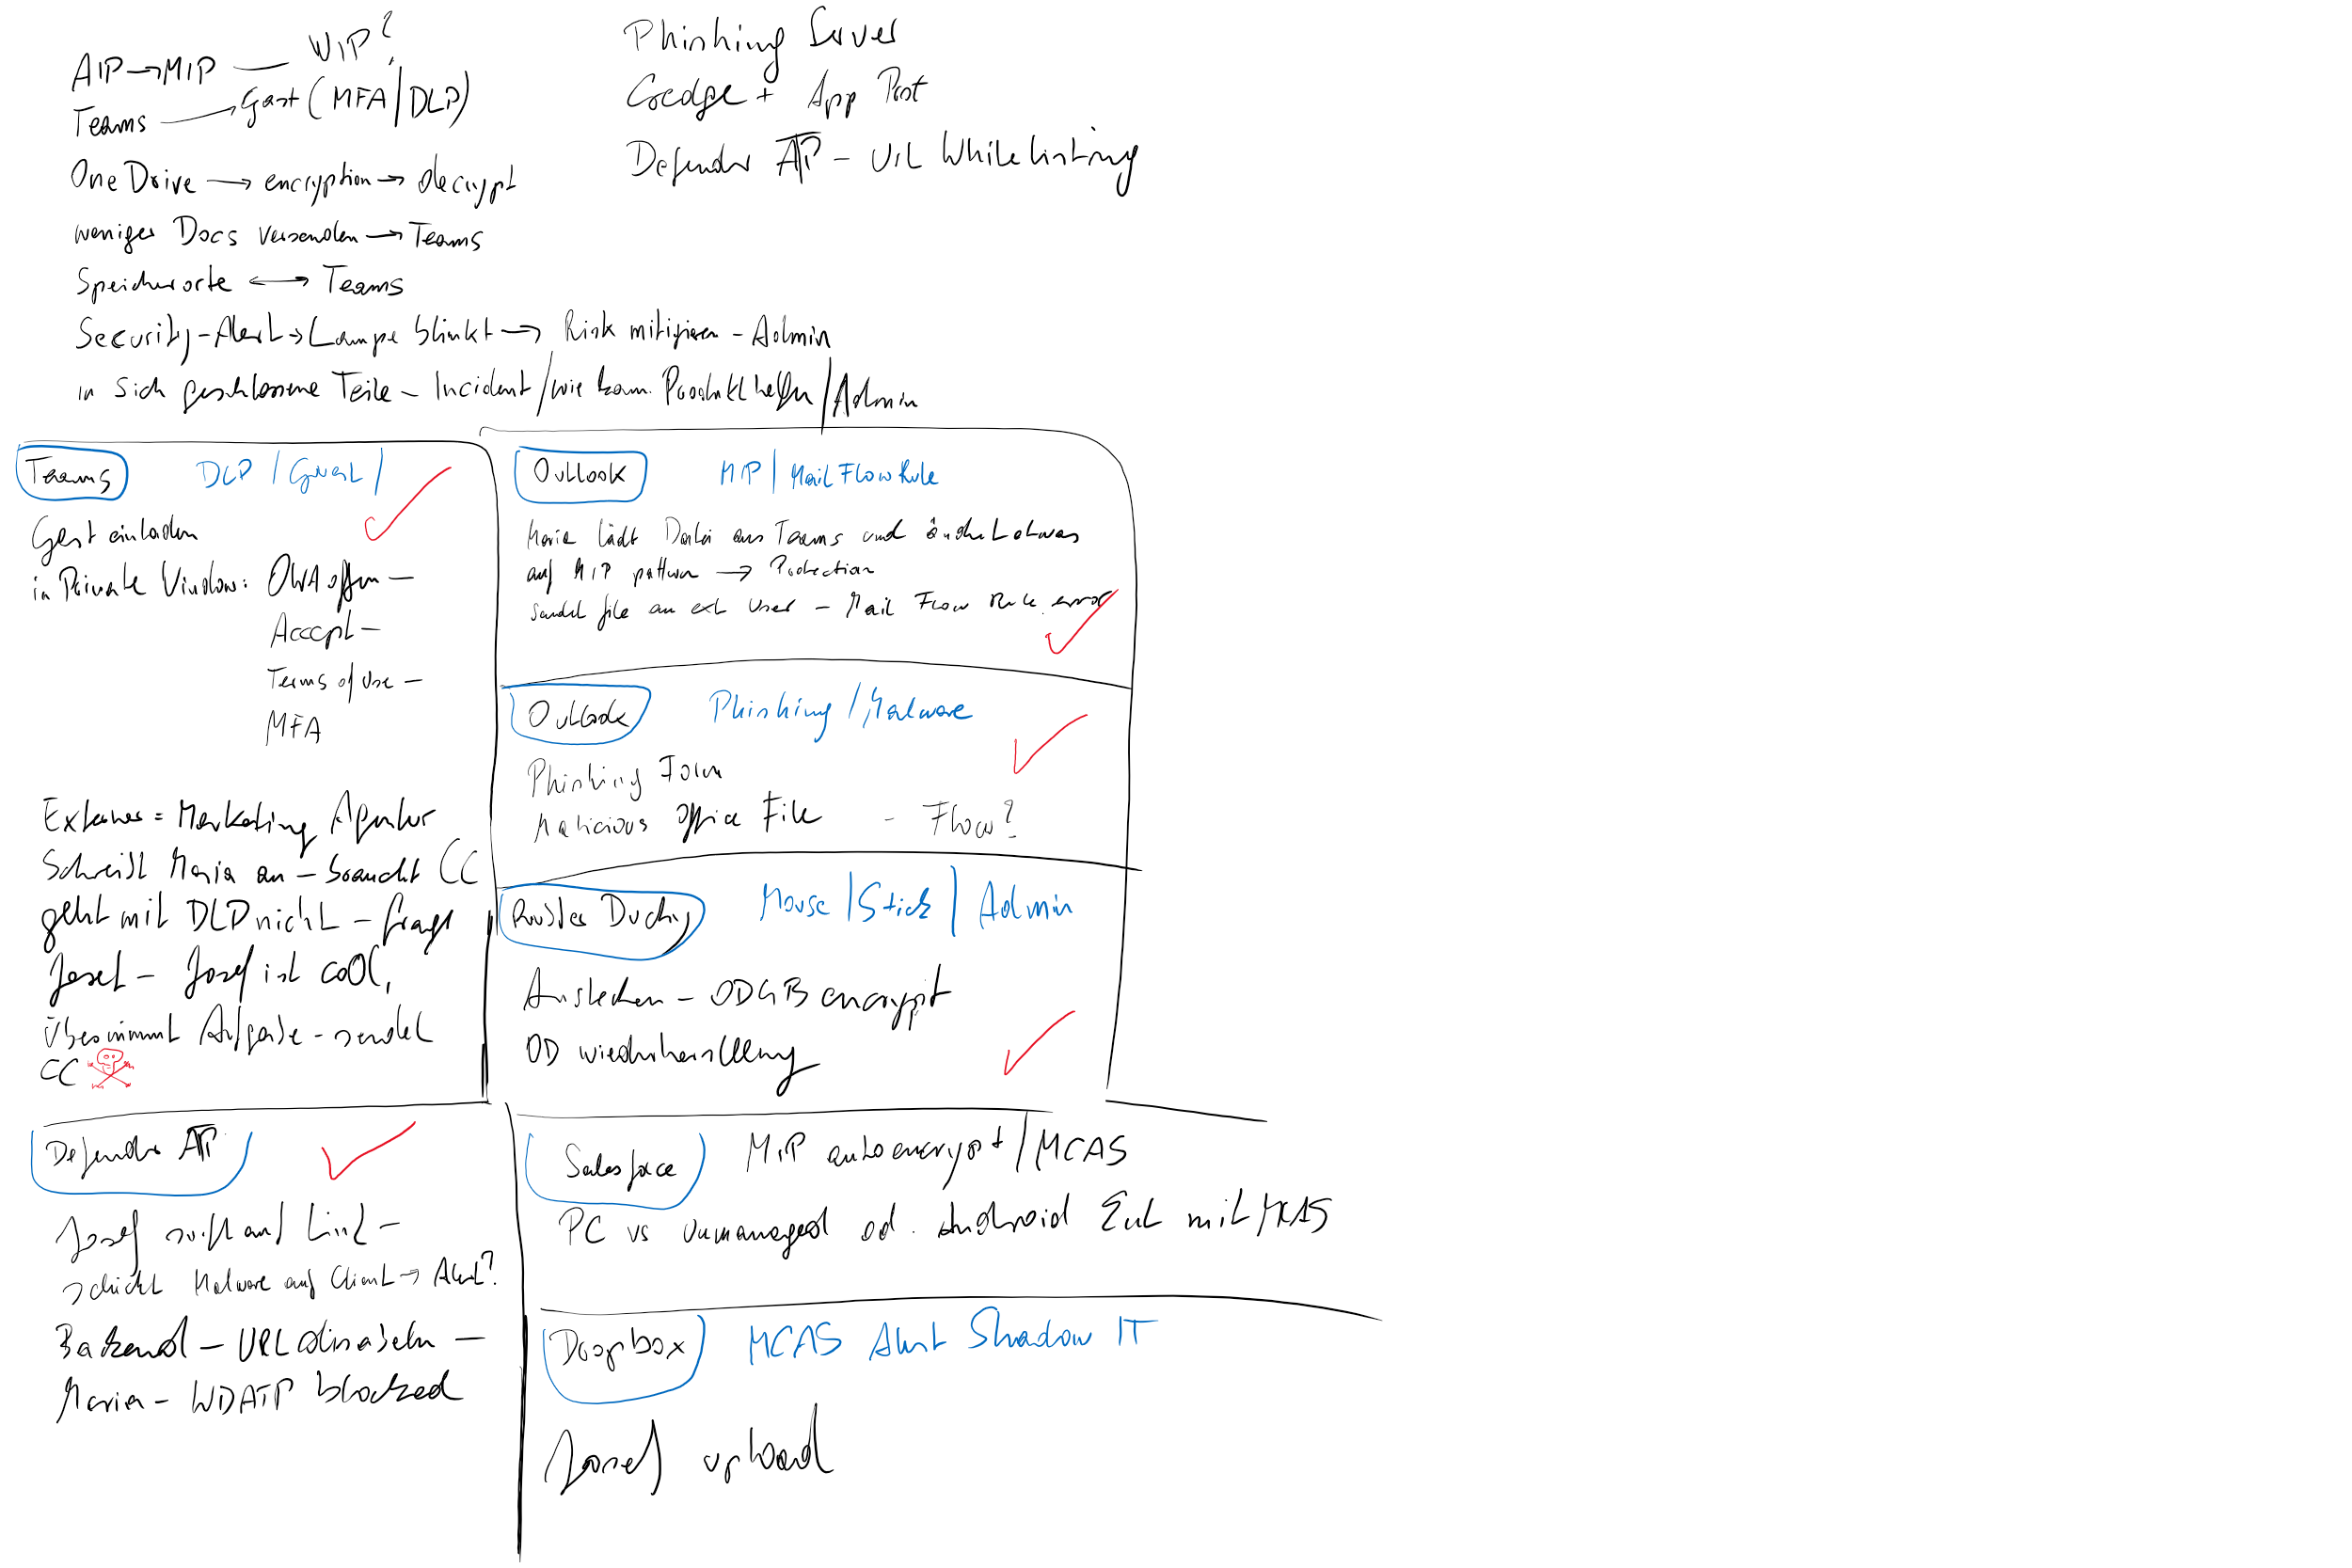 AIP → MIP — WIP?
Teams → Gast (MFA/DLP)
OneDrive → encryption → decrypt
weniger Docs versenden → Teams
Speicherorte ↔ Teams
Security-Alert → Lampe blinkt → Risk mitigieren - Admin
in sich geschlossene Teile - Incident / wie kann Produkt helfen / Admin
Phishing Server
+ App
Defender ATP - URL Whitelisting
Teams DLP / Guest /
Gast einladen
in Private Window: OWA öffnen -
Accept -
Terms of Use -
MFA
Externer = Marketing Agentur
Schreibt Maria an - braucht CC
geht mit DLP nicht - fragt
Josef - Josef ist cool,
übernimmt Aufgabe - sendet
CC
Outlook MIP / Mail Flow Rule
Maria lädt Datei aus Teams und ändert etwas
auf MIP pattern → Protection
sendet file an ext User - Mail Flow Rule error
Outlook Phishing / Malware
Phishing Form
Malicious Office File - Flow?
Rubber Ducky Mouse / Stick / Admin
Anstecken - OD4B encrypt
OD wiederherstellung
Defender ATP
Josef surft auf Link -
schickt Malware auf Client → Alert?
Backend - URL disabeln -
Maria - WDATP blocked
Salesforce MIP autoencrypt / MCAS
PC vs unmanaged od. Android mit MCAS
Dropbox MCAS Alert Shadow IT
Josef upload